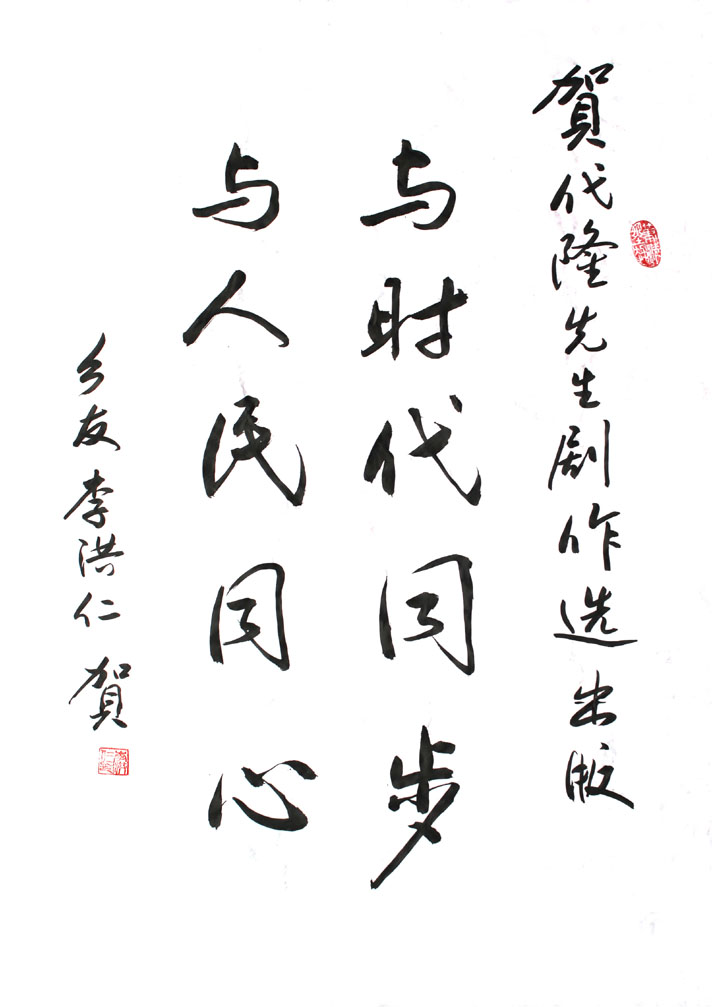 贺代隆先生剧作选出版
与时代同步
与人民同心
乡友李洪仁贺